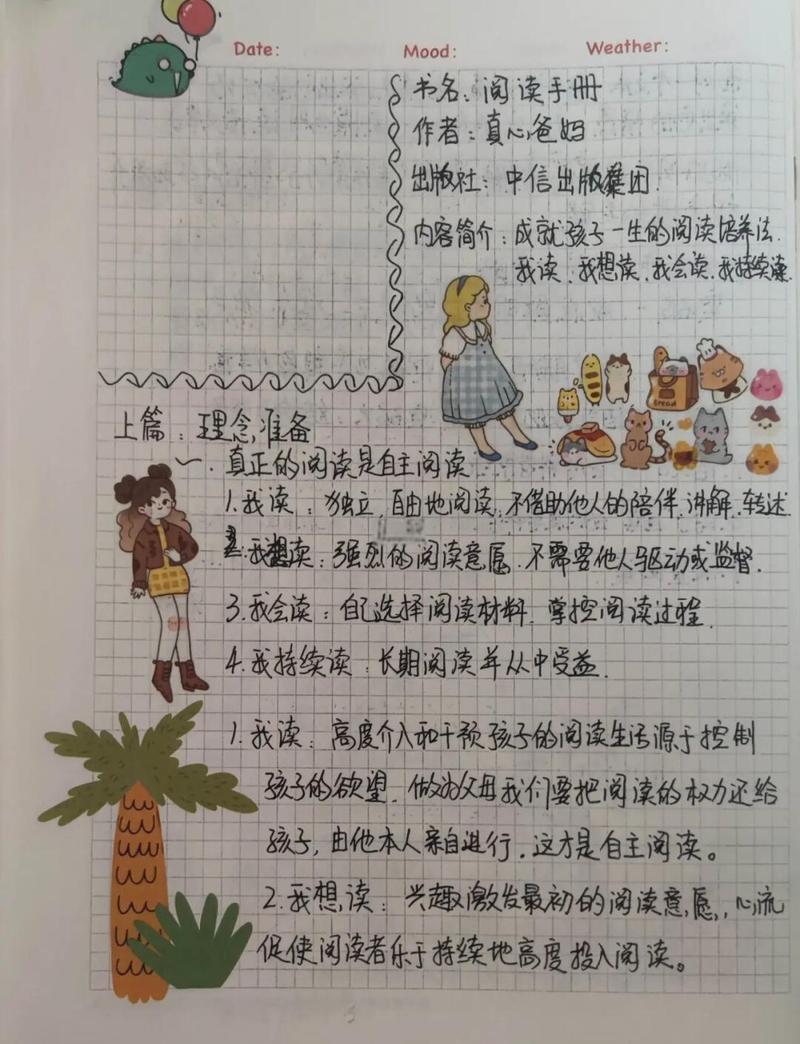 Date: Mood: Weather:
书名：阅读手册
作者：真心爸妈
出版社：中信出版集团.
内容简介：成就孩子一生的阅读培养法.
我读、我想读、我会读、我持续读.
上篇：理念,准备
一. 真正的阅读是自主阅读
1.我读：独立,自由地阅读,不借助他人的陪伴,讲解,转述.
2.我想读：强烈的阅读意愿,不需要他人驱动或监督.
3.我会读：自己选择阅读材料,掌控阅读过程.
4.我持续读：长期阅读并从中受益.
1.我读：高度介入和干预孩子的阅读生活源于控制
孩子的欲望,做为父母我们要把阅读的权力还给
孩子,由他本人亲自进行.这才是自主阅读。
2.我想读：兴趣激发最初的阅读意愿,心流
促使阅读者乐于持续地高度投入阅读。
bread